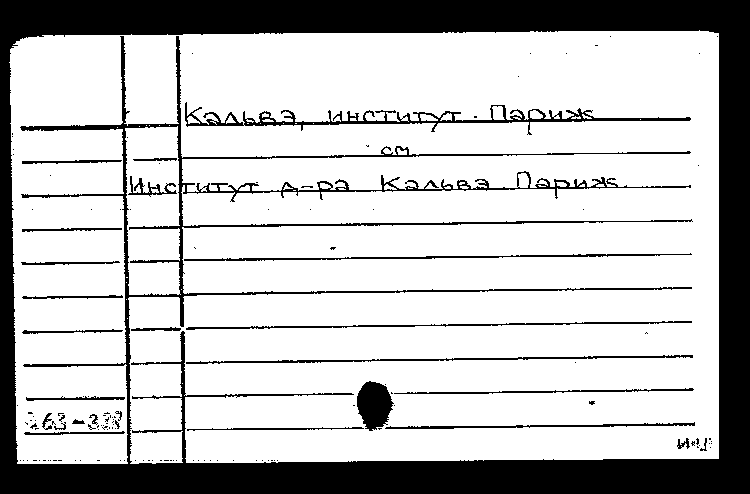 Кальвэ, институт. Париж
см.
Институт д-ра Кальвэ Париж.